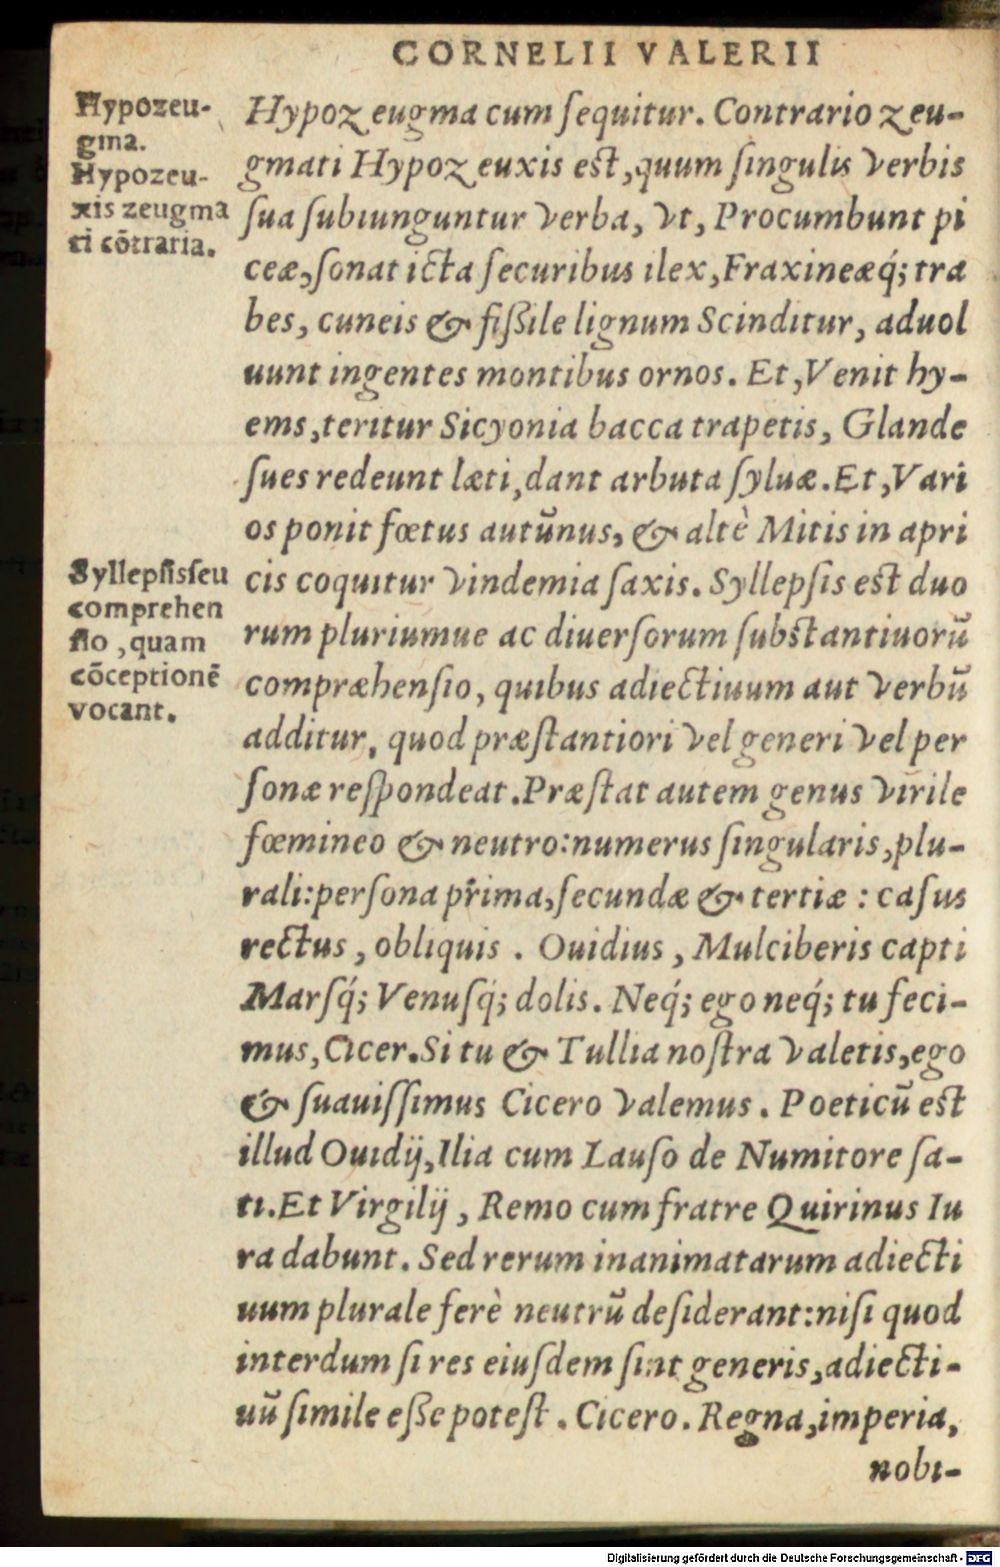 CORNELII VALERII
Hypozeu-
gma.
Hypozeu-
xis zeugma
ti cōtraria.
Hypozeugma cum ſequitur. Contrario zeu-
gmati Hypozeuxis est, quum ſingulis verbis
ſua ſubiunguntur verba, vt, Procumbunt pi
ceæ, ſonat icta ſecuribus ilex, Fraxineæq́; tra
bes, cuneis & fiſsile lignum Scinditur, aduol
uunt ingentes montibus ornos. Et, Venit hy-
ems, teritur Sicyonia bacca trapetis, Glande
ſues redeunt læti, dant arbuta ſyluæ. Et, Vari
os ponit fœtus autūnus, & altè Mitis in apri
Syllepſisſeu
comprehen
ſio, quam
cōceptionē
vocant.
cis coquitur vindemia ſaxis. Syllepſis est duo
rum pluriumue ac diuerſorum ſubstantiuorū
compræhenſio, quibus adiectiuum aut verbū
additur, quod præſtantiori vel generi vel per
ſonæ reſpondeat. Præſtat autem genus virile
fœmineo & neutro: numerus ſingularis, plu-
rali: perſona prima, ſecundæ & tertiæ: caſus
rectus, obliquis. Ouidius, Mulciberis capti
Marſq́; Venuſq́; dolis. Neq́; ego neq́; tu feci-
mus, Cicer. Si tu & Tullia noſtra valetis, ego
& ſuauiſſimus Cicero valemus. Poeticū est
illud Ouidij, Ilia cum Lauſo de Numitore ſa-
ti. Et Virgilij, Remo cum fratre Quirinus Iu
ra dabunt. Sed rerum inanimatarum adiecti
uum plurale ferè neutrū deſiderant: niſi quod
interdum ſi res eiuſdem ſint generis, adiecti-
uū ſimile eſse poteſt. Cicero. Regna, imperia,
nobi-
Digitalisierung gefördert durch die Deutsche Forschungsgemeinschaft - DFG